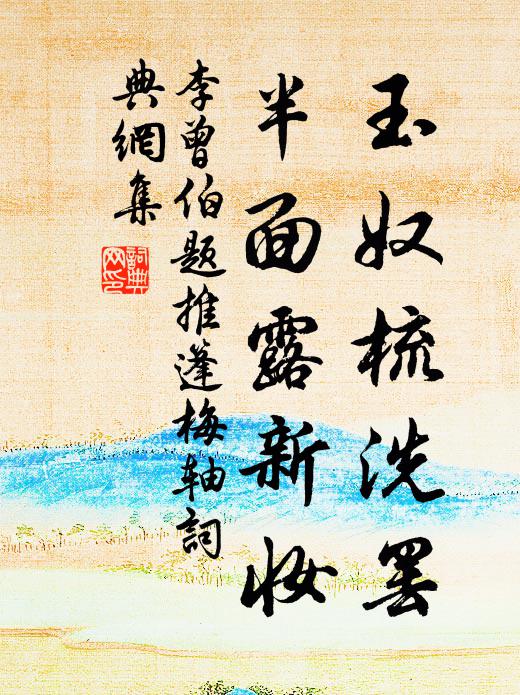 玉奴梳洗罢
半面露新妆
李曾伯题推蓬梅轴词
典網集
詞典
网印